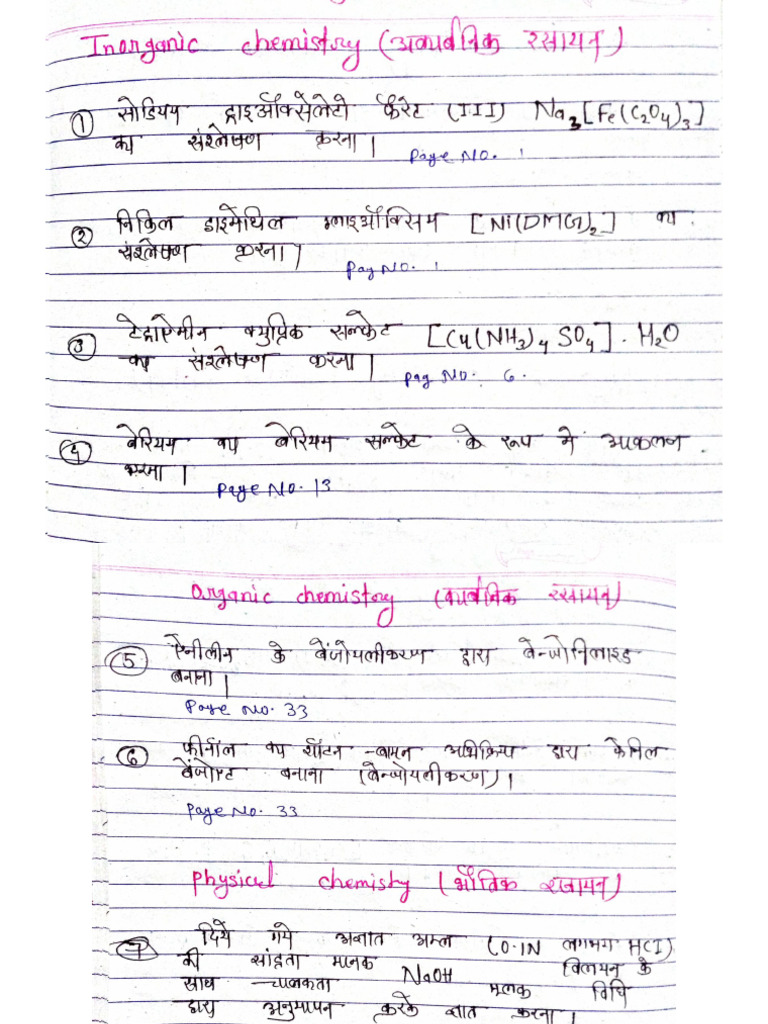 Inorganic chemistry (अकार्बनिक रसायन)
① सोडियम ट्राइऑक्सेलेटो फैरेट (III) Na3[Fe(C2O4)3]
का संश्लेषण करना।
Page No. 1
② निकिल डाइमेथिल ग्लाइऑक्सिम [Ni(DMG)2] का
संश्लेषण करना।
Pag No. 1
③ टेट्राऐमीन क्युप्रिक सल्फेट [Cu(NH3)4 SO4]. H2O
का संश्लेषण करना।
Pag No. 6.
④ बेरियम का बेरियम सल्फेट के रूप में आकलन
करना।
Page No. 13
Organic chemistry (कार्बनिक रसायन)
⑤ ऐनीलीन के बेंजोयलीकरण द्वारा बेन्जोनिलाइड
बनाना।
Page No. 33
⑥ फीनॉल का शॉटन -बामन अभिक्रिया द्वारा फेनिल
बेंजोएट बनाना (बेन्जोयलीकरण)।
Page No. 33
physical chemistry (भौतिक रसायन)
⑦ दिये गये अज्ञात अम्ल (0.1N लगभग HCl)
की सांद्रता मानक NaOH विलयन के
साथ -चालकता मूलक विधि
द्वारा अनुमापन करके ज्ञात करना।